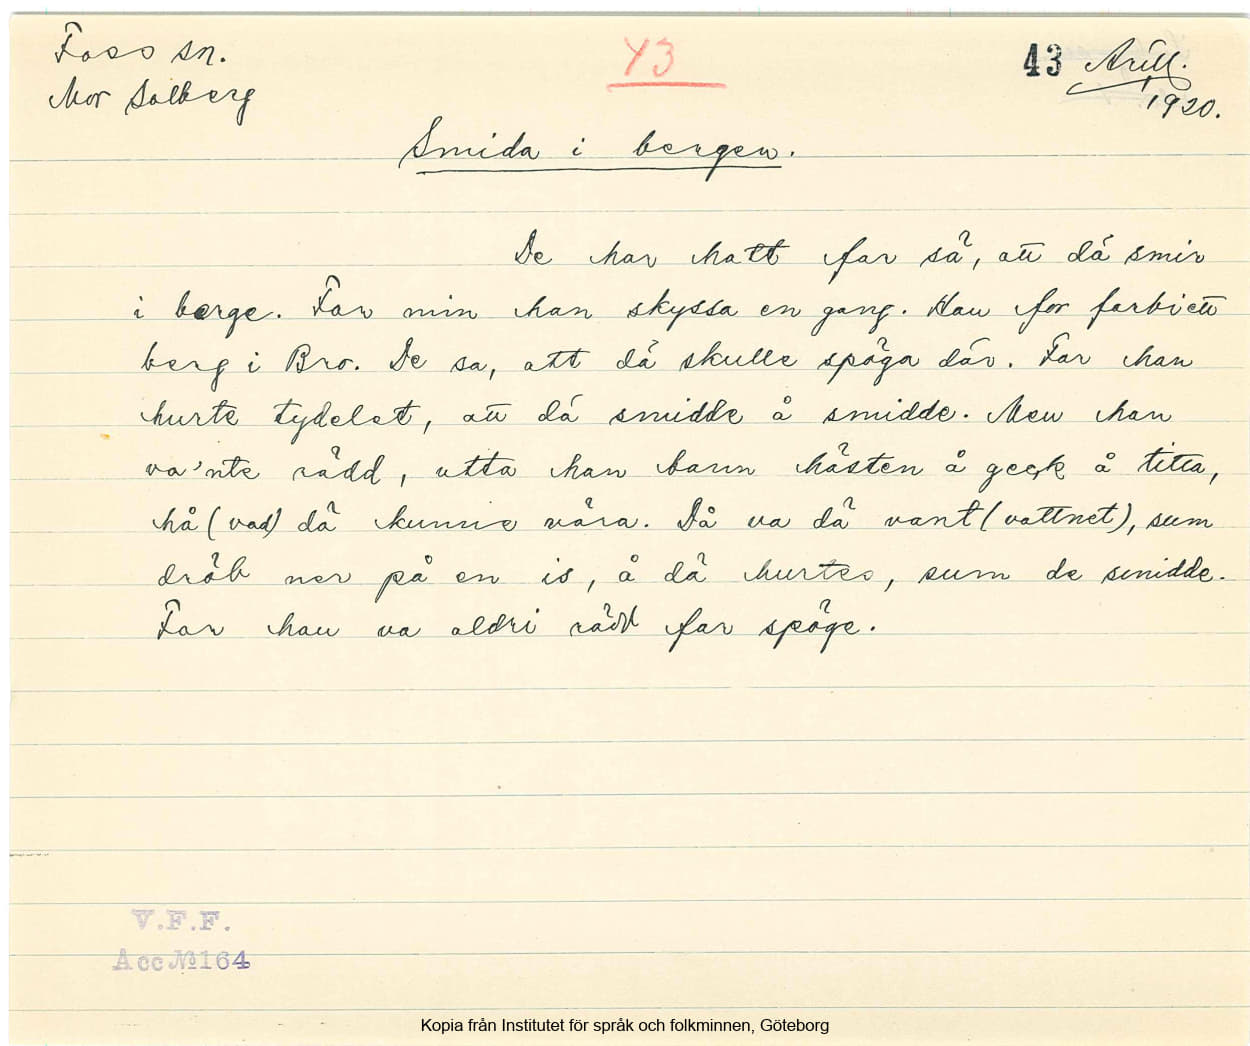 Foss sn.
Mor Solberg
43
43 Arill.
1920.
Smida i bergen.
De har hatt far sä, att dä smir
i berge. Far min han skyssa en gang. Han for farbi ett
berg i Bro. De sa, att dä skulle spöga där. Far han
hurte tydelet, att dä smidde å smidde. Men han
va'nte rädd, utta han bann hästen å geck å titta,
hå (vad) dä kunne våra. Då va dä vant (vattnet), sum
dröb ner på en is, å dä hurtes, sum de smidde.
Far han va aldri rädd far spöge.
V.F.F.
Acc № 164
Kopia från Institutet för språk och folkminnen, Göteborg